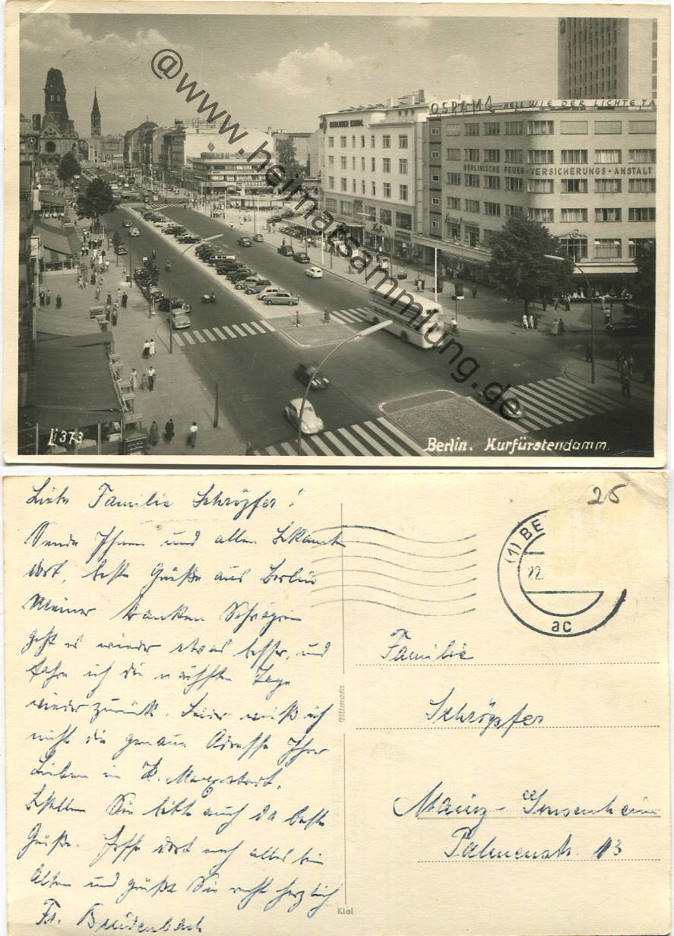 @www.heimatsammlung.de
OSRAM HELL WIE DER LICHTE TA
BERLINISCHE FEUER-VERSICHERUNGS-ANSTALT
Li 373
Berlin. Kurfürstendamm.
25
Liebe Familie Schröpfer!
Sende Ihnen und allen Bekannten
dort, beste Grüße aus Berlin
Meiner kranken Schwägerin
geht es wieder etwas besser, und
fahre ich die nächsten Tage
wieder zurück. Leider weiß ich
nicht die genaue Adresse Ihrer
Lieben in
Stellen Sie bitte auch da beste
Grüße. Hoffe dort noch alles beim
Alten und grüße Sie recht herzlich
Fr. Breidenbach
(1) BE
12.
ac
Familie
Schröpfer
Mainz-Gonsenheim
Palmenstr. 13
Ultmontz
Kiel